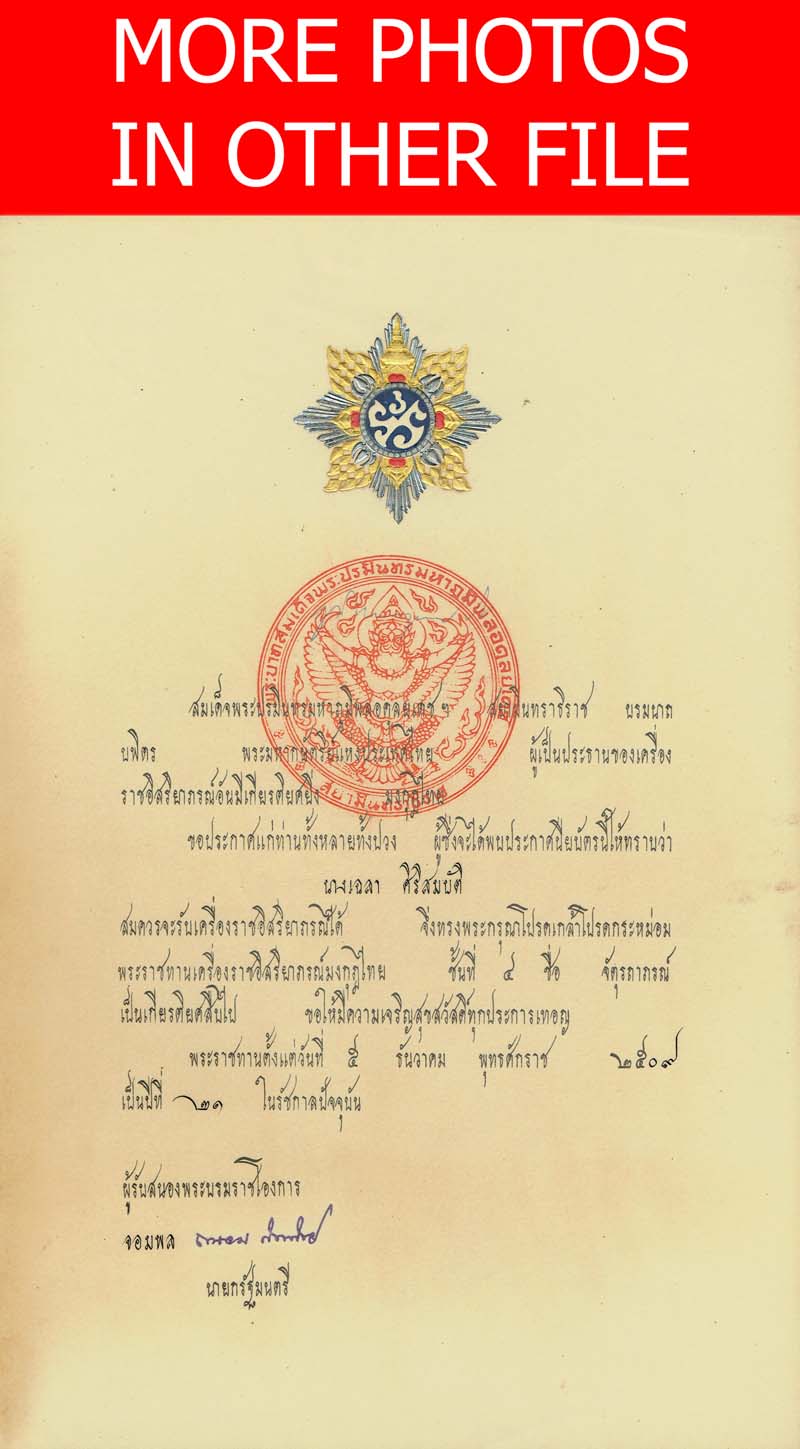 MORE PHOTOS
IN OTHER FILE
พระบาทสมเด็จพระปรมินทรมหาภูมิพลอดุลยเดช
สยามินทราธิราช
สมเด็จพระปรมินทรมหาภูมิพลอดุลยเดช ฯ สยามินทราธิราช บรมนาถ
บพิตร พระมหากษัตริย์แห่งประเทศไทย ผู้เป็นประธานของเครื่อง
ราชอิสริยาภรณ์อันมีเกียรติยศยิ่ง มงกุฎไทย
ขอประกาศแก่ท่านทั้งหลายทั้งปวง ผู้ซึ่งจะได้พบประกาศนียบัตรนี้ให้ทราบว่า
นางเฉลา ศิริสมบัติ
สมควรจะรับเครื่องราชอิสริยาภรณ์ได้ จึ่งทรงพระกรุณาโปรดเกล้าโปรดกระหม่อม
พระราชทานเครื่องราชอิสริยาภรณ์มงกุฎไทย ชั้นที่ ๔ ชื่อ จัตุรถาภรณ์
เป็นเกียรติยศสืบไป ขอให้มีความเจริญสุขสวัสดิ์ทุกประการเทอญ
พระราชทานตั้งแต่วันที่ ๕ ธันวาคม พุทธศักราช ๒๕๐๙
เป็นปีที่ ๒๑ ในรัชกาลปัจจุบัน
ผู้รับสนองพระบรมราชโองการ
จอมพล
นายกรัฐมนตรี